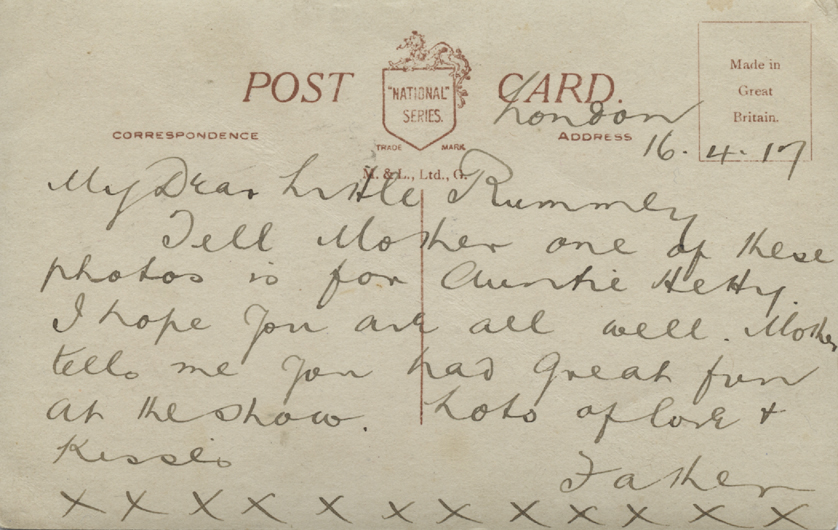 POST CARD.
"NATIONAL"
SERIES.
TRADE MARK
M. & L., Ltd., G.
Made in
Great
Britain.
CORRESPONDENCE
ADDRESS
London
16.4.17
My Dear Little Rummey
Tell Mother one of these
photos is for Auntie Hetty.
I hope you are all well. Mother
tells me you had great fun
at the show. Lots of love +
Kisses
Father
X X X X X X X X X X X X X